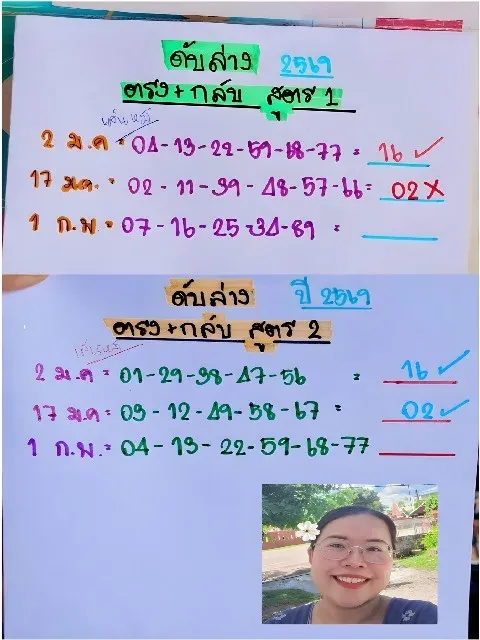 ดับล่าง 2569
ตรง+กลับ สูตร 1
2 ม.ค = 04-13-22-59-68-77= 16 ✓
17 ม.ค. = 02-11-39-48-57-66= 02 X
1 ก.พ = 07-16-25-34-89 =
ดับล่าง ปี 2569
ตรง+กลับ สูตร 2
2 ม.ค = 01-29-38-47-56 = 16 ✓
17 ม.ค = 03-12-49-58-67 = 02 ✓
1 ก.พ. = 04-13-22-59-68-77